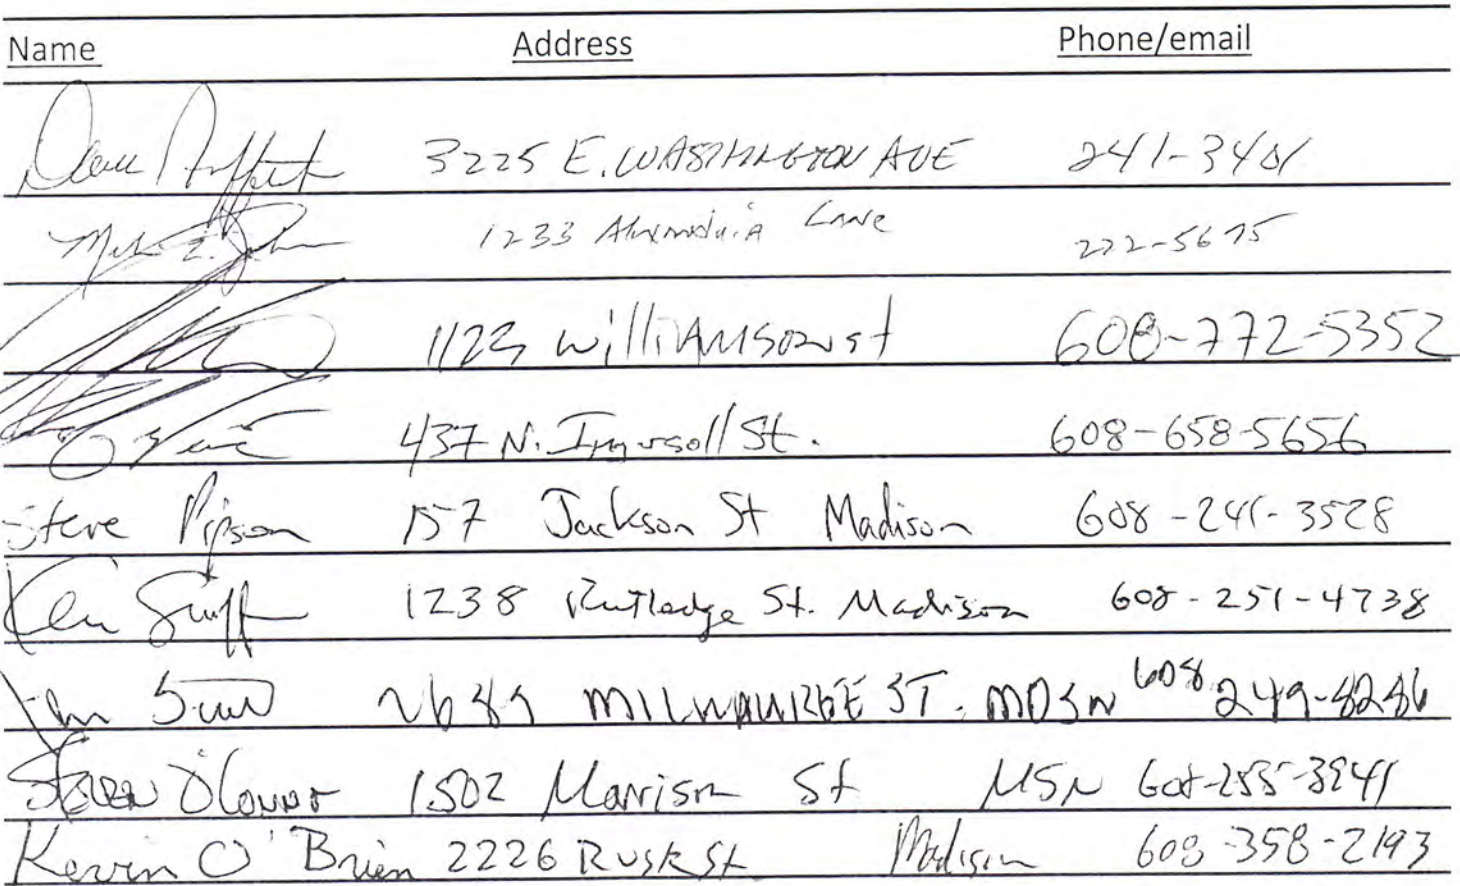 Name Address Phone/email
3225 E. WASHINGTON AVE 241-3401
1233 Lane 222-5675
1123 Williamson st 608-772-5352
437 N. Ingersoll St. 608-658-5656
Steve 157 Jackson St Madison 608-241-3528
Ken 1238 Rutledge St. Madison 608-251-4738
2689 MILWAUKEE ST. MDSN 608 249-8286
Steven O'Connor 1502 Morrison St MSN 608-255-3941
Kevin O'Brien 2226 RUSK St Madison 608-358-2193